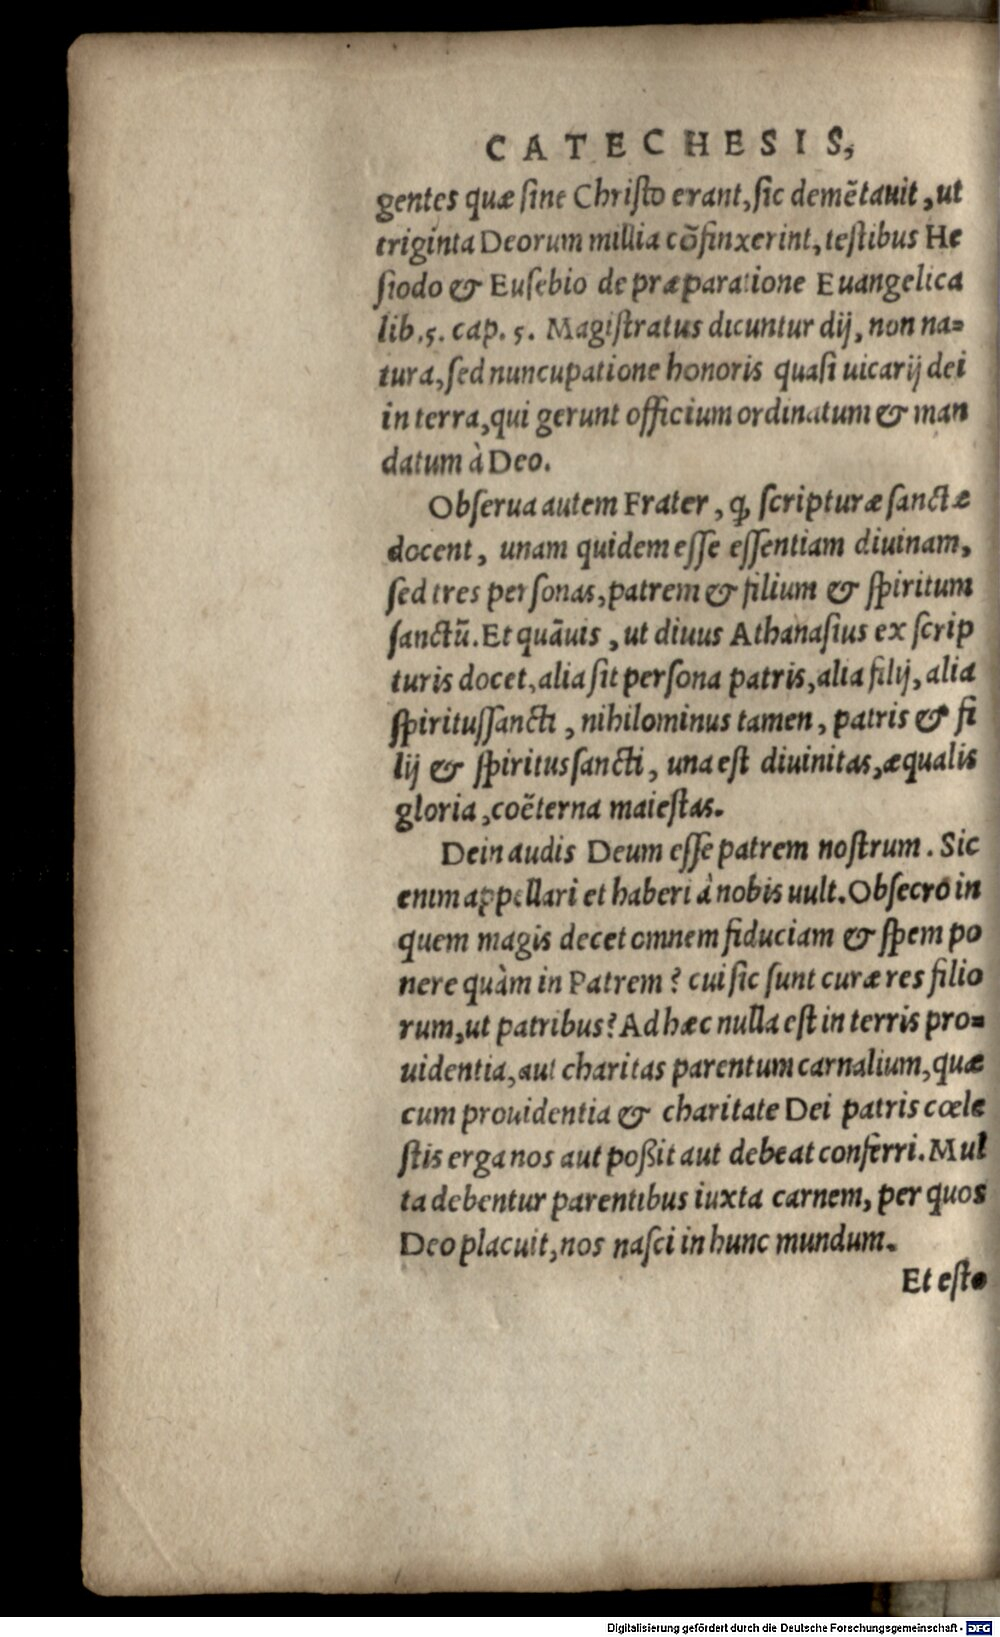 CATECHESIS,
gentes quæ ſine Chriſto erant, ſic demẽtauit, ut
triginta Deorum millia cõfinxerint, teſtibus He
ſiodo & Euſebio de præparatione Euangelica
lib. 5. cap. 5. Magiſtratus dicuntur dij, non na=
tura, ſed nuncupatione honoris quaſi uicarij dei
in terra, qui gerunt officium ordinatum & man
datum à Deo.
Obſerua autem Frater, ꝙ ſcripturæ ſanctæ
docent, unam quidem eſſe eſſentiam diuinam,
ſed tres perſonas, patrem & filium & ſpiritum
ſanctũ. Et quãuis, ut diuus Athanaſius ex ſcrip
turis docet, alia ſit perſona patris, alia filij, alia
ſpirituſſancti, nihilominus tamen, patris & fi
lij & ſpiritusſancti, una eſt diuinitas, æqualis
gloria, coẽterna maieſtas.
Dein audis Deum eſſe patrem noſtrum. Sic
enim appellari et haberi à nobis uult. Obſecro in
quem magis decet omnem fiduciam & ſpem po
nere quàm in Patrem? cui ſic ſunt curæ res filio
rum, ut patribus? Ad hæc nulla eſt in terris pro=
uidentia, aut charitas parentum carnalium, quæ
cum prouidentia & charitate Dei patris cœle
ſtis erga nos aut poßit aut debeat conferri. Mul
ta debentur parentibus iuxta carnem, per quos
Deo placuit, nos naſci in hunc mundum.
Et eſto
Digitalisierung gefördert durch die Deutsche Forschungsgemeinschaft - DFG